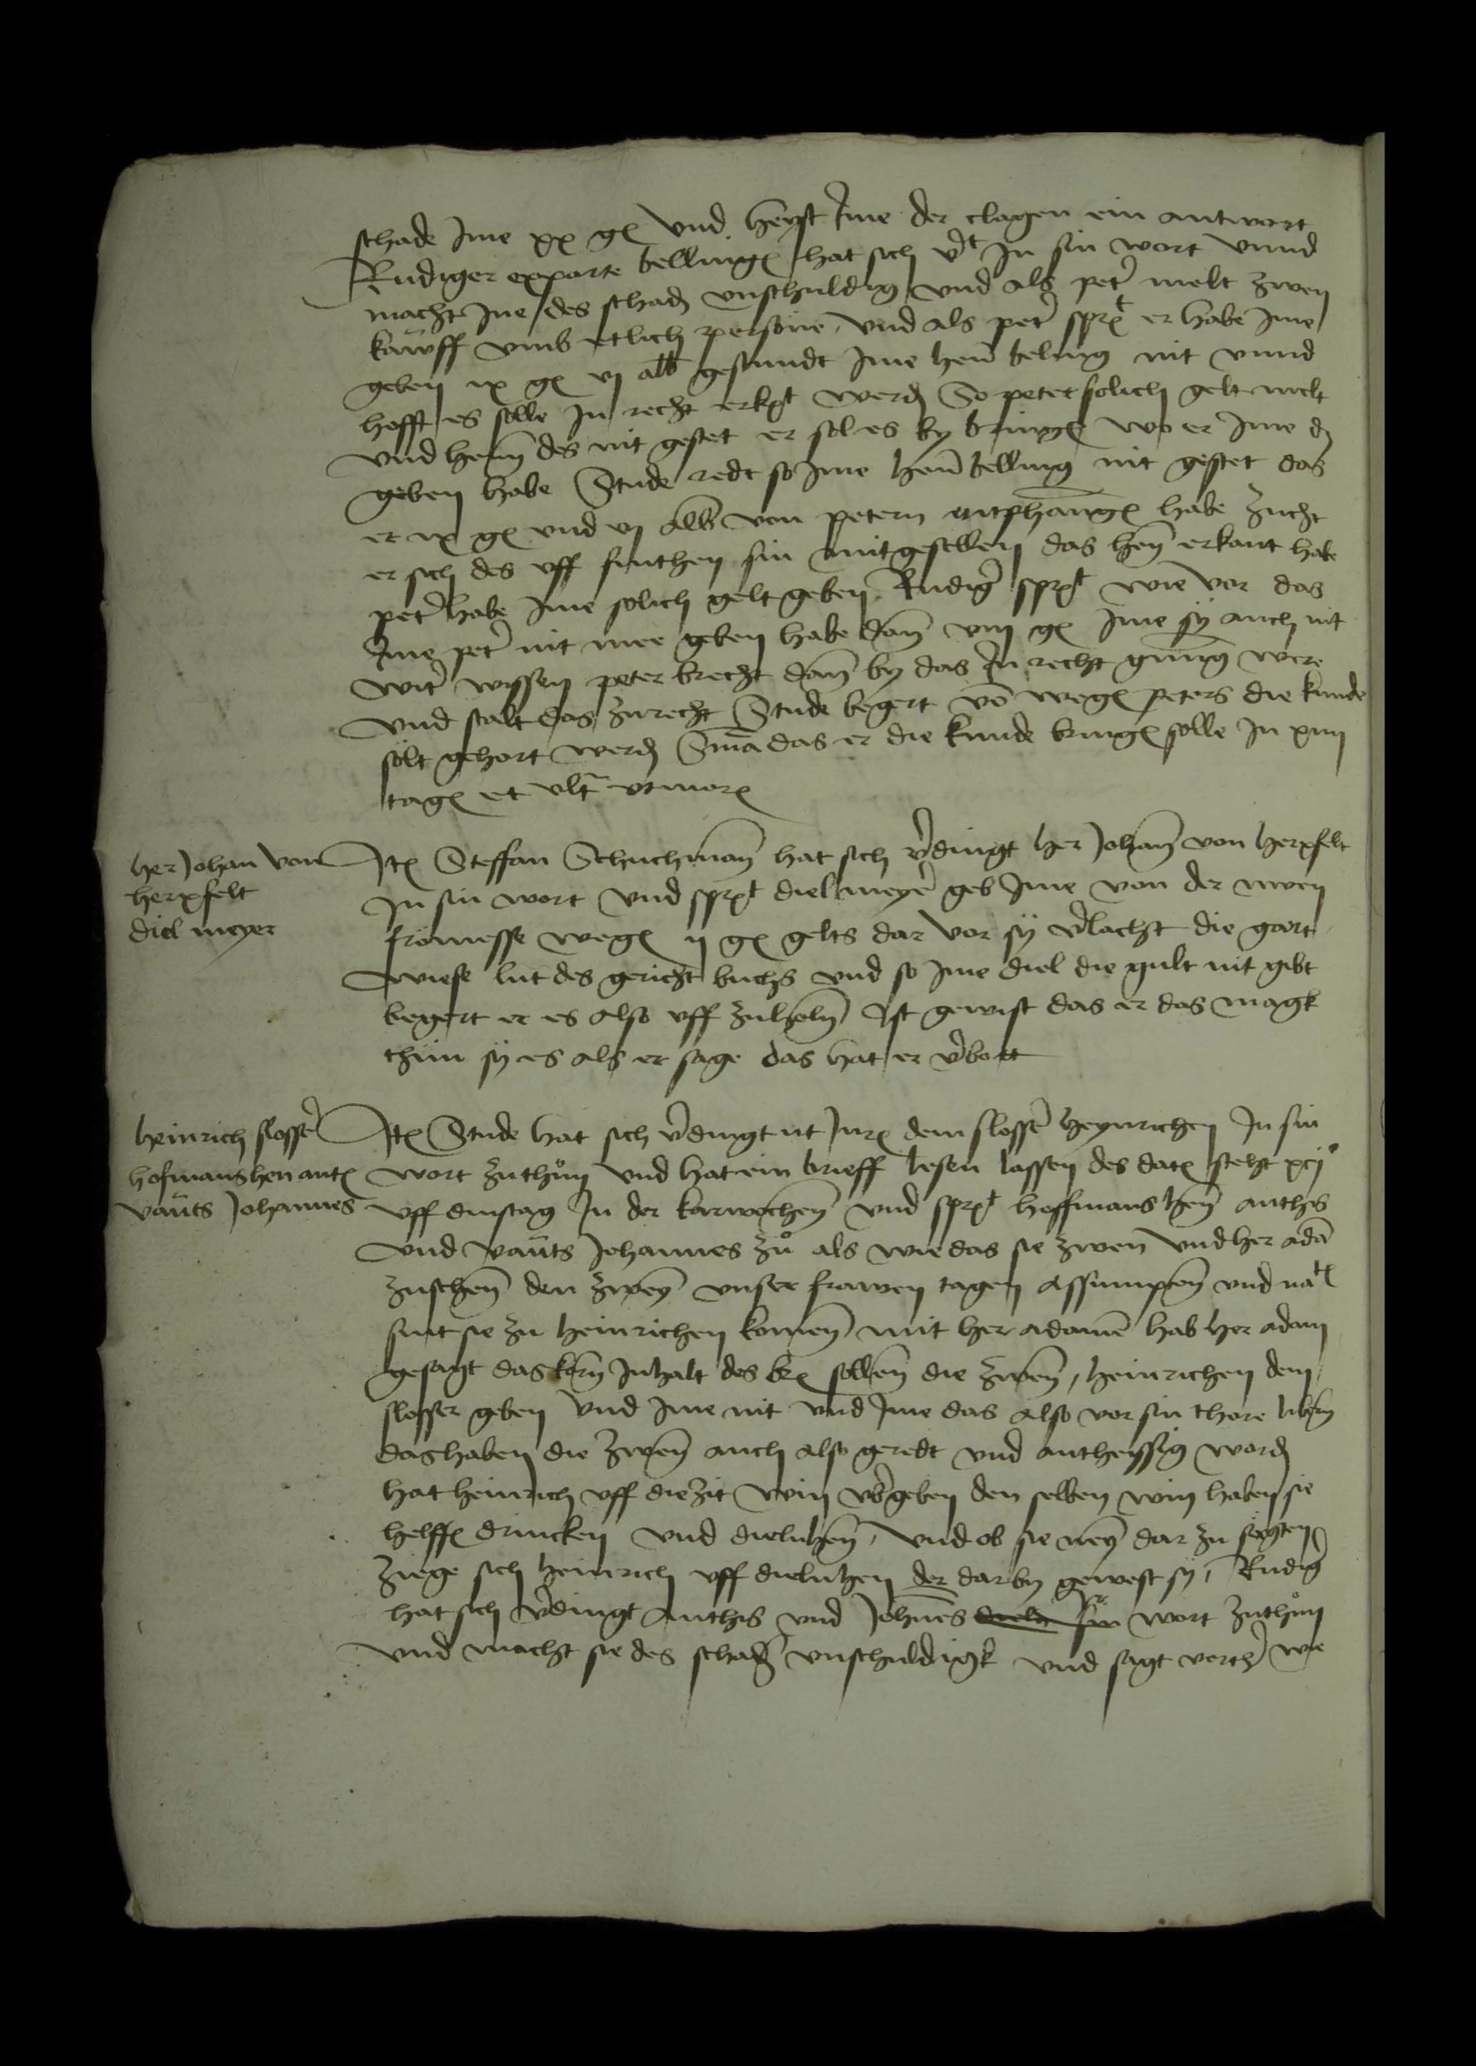 schade Ime xx g und heyst Ime der clagen ein antwort
Rudiger exparte belling hat sich v't In sin wort unnd
macht Ine des schad unschuldig und als pet' melt zwen
kauff umb etlich persone, und als pet' sprt er habe Ime
geben ix g vj alb gestundt Ime hen beling nit unnd
hofft es solle In recht erkt werd So peter solich gelt melt
und hen des nit gestet er sol es by bring wo er Ime d
geben habe Stude redt so Ime hen belling nit gestet das
er ix g und vj alb von petern entphang habe zucht
er sich des uff sinthen sin mitgesellen das hen erkant habe
pet' habe Ime solich gelt geben Rudig' sprt wie vor das
Ime pet' nit mee geben habe dan viij g Ime sy auch nit
wit' wyssen peter brecht dan by das In recht gnung were
und stalt das zurecht Stude begert vo weg peters die kunde
solt gehort werd Sma das er die kunde bring solle In xiiij
tag et ult' ut mor
her Johan von
herxfelt
diel meyer
It Steffan Schuchman hat sich v'dingt her Johan von herxfelt
In sin wort und sprt diel meye' geb Ime von der nwen
fromesse weg ij g gelts dar vor sy v'lacht die gart
wiese lut des gericht buchs und so Ime diel die gult nit gibt
begert er es also uff zuholn Ist gewist das er das magk
thun sy es als er sage das hat er v'bott
heinrich slosse'
hofmans hen ant
vauts Johannes
It Stude hat sich v'dingt ut Jur dem slosse' heynrichen In sin
wort zuthun und hat ein brieff lesen lassen des dat steht xcijo
uff dinstag In der karwochen und sprt hoffmans hen anthis
und vauts Johannes zu als wie das sie zwen und her ada
zuschen den zwey unser frawen tagen assumpcois und nat
sint sie zu heinrichen komen mit her adame hab her adam
gesagt das korn Inhalt des br sollen die zwen, heinrichen dem
slosser geben und Ime nit und Ime das also vor sin thore libern
das haben die zwen auch also geredt und antheyssig word
hat heinrich uff die zit win ubgeben den selben win haben sie
helff drincken und dielnhen, und ob sie neyn dar zu sagten
ziege sich heinrich uff dielnhen der darby gewest sy, Rudig'
hat sich v'dingt Anthis und Johnes Ir wort zuthun
und macht sie des schad unschuldigk und sagt verer wie